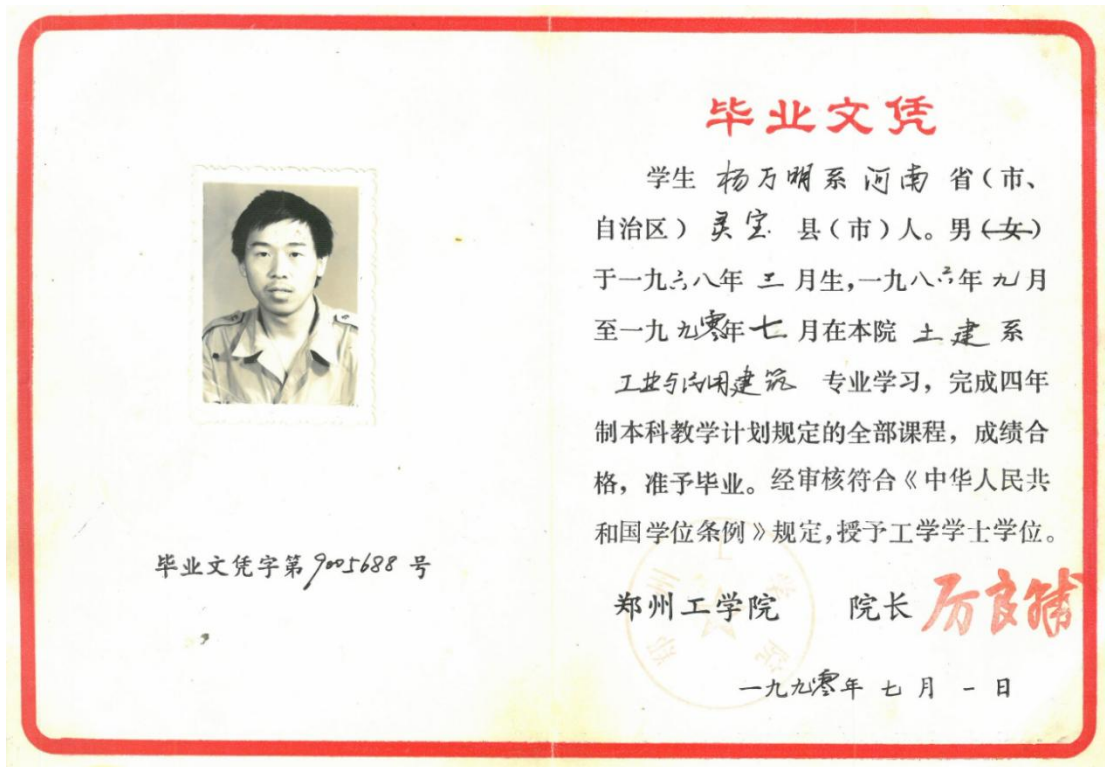 毕业文凭
学生 杨万明系 河南 省(市、
自治区)灵宝 县(市)人。男(女)
于一九六八年 三 月生,一九八六年 九 月
至一九九零年 七 月在本院 土建 系
工业与民用建筑 专业学习,完成四年
制本科教学计划规定的全部课程,成绩合
格,准予毕业。经审核符合《中华人民共
和国学位条例》规定,授予工学学士学位。
郑州工学院 院长 厉良辅
一九九零年 七 月 一 日
毕业文凭字第9005688 号
郑州工学院